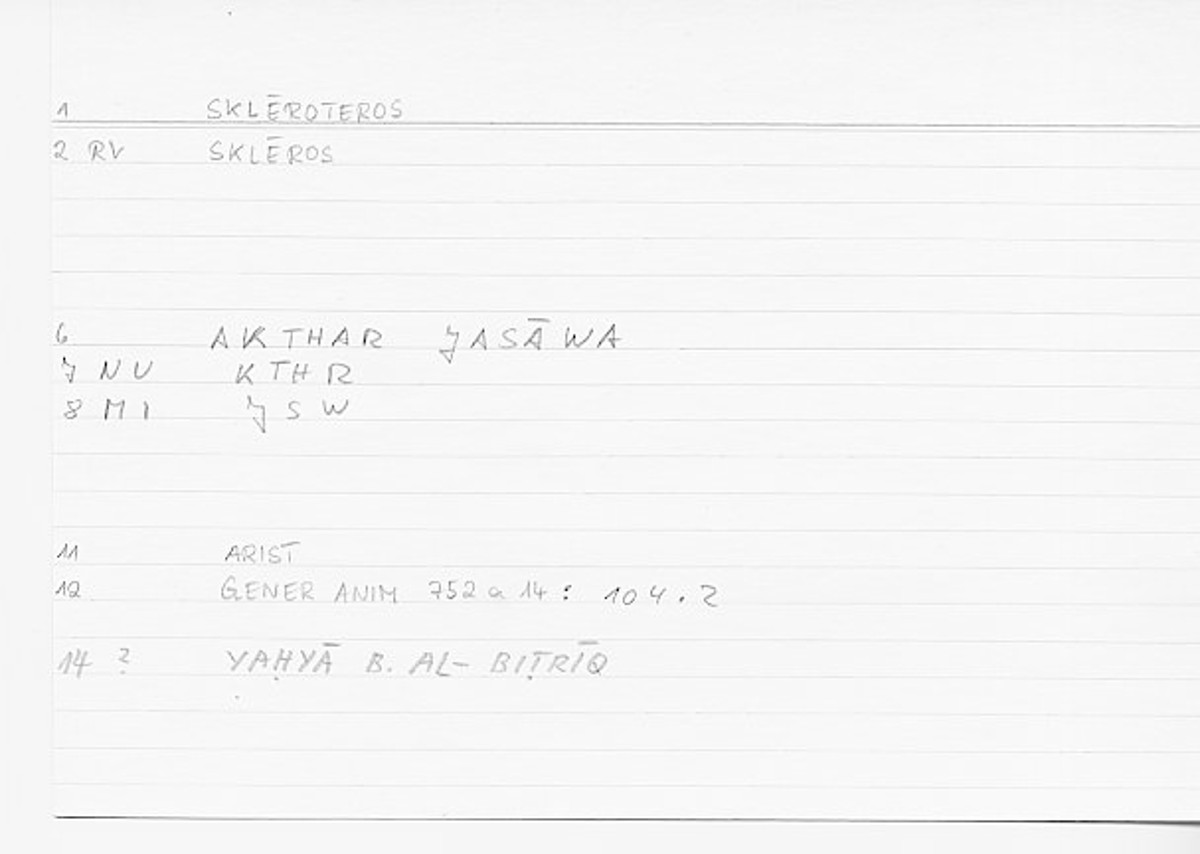 1 SKLĒROTEROS
2 RV SKLĒROS
6 AKTHAR JASĀWA
7 NU KTHR
8 MI JSW
11 ARIST
12 GENER ANIM 752 a 14 : 104.2
14 ? YAḤYĀ B. AL- BIṬRĪQ